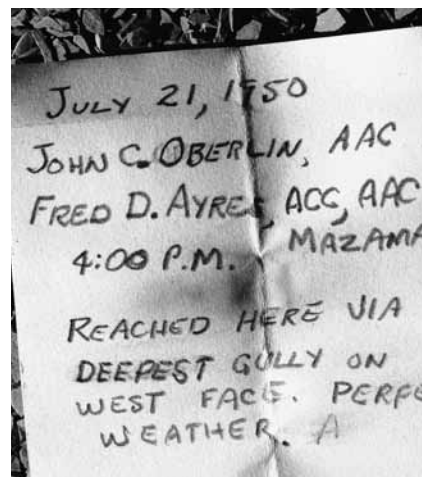 JULY 21, 1950
JOHN C. OBERLIN, AAC
FRED D. AYRES, ACC, AAC
4:00 P.M. MAZAMA
REACHED HERE VIA
DEEPEST GULLY ON
WEST FACE. PERFE
WEATHER. A